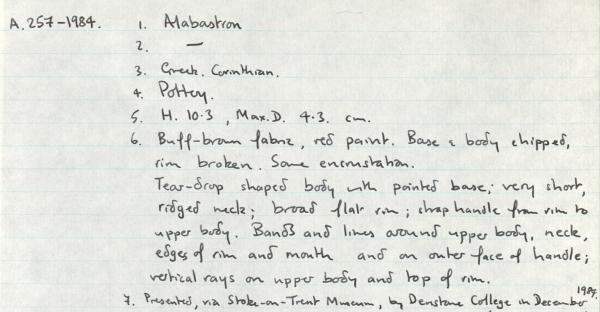 A.257-1984. 1. Alabastron
2. —
3. Greek. Corinthian.
4. Pottery.
5. H. 10.3, Max.D. 4.3. cm.
6. Buff-brown fabric, red paint. Base & body chipped,
rim broken. Some encrustation.
Tear-drop shaped body with pointed base; very short,
ridged neck; broad flat rim; strap handle from rim to
upper body. Bands and lines around upper body, neck,
edges of rim and mouth and on outer face of handle;
vertical rays on upper body and top of rim.
7. Presented, via Stoke-on-Trent Museum, by Denstone College in December 1984.